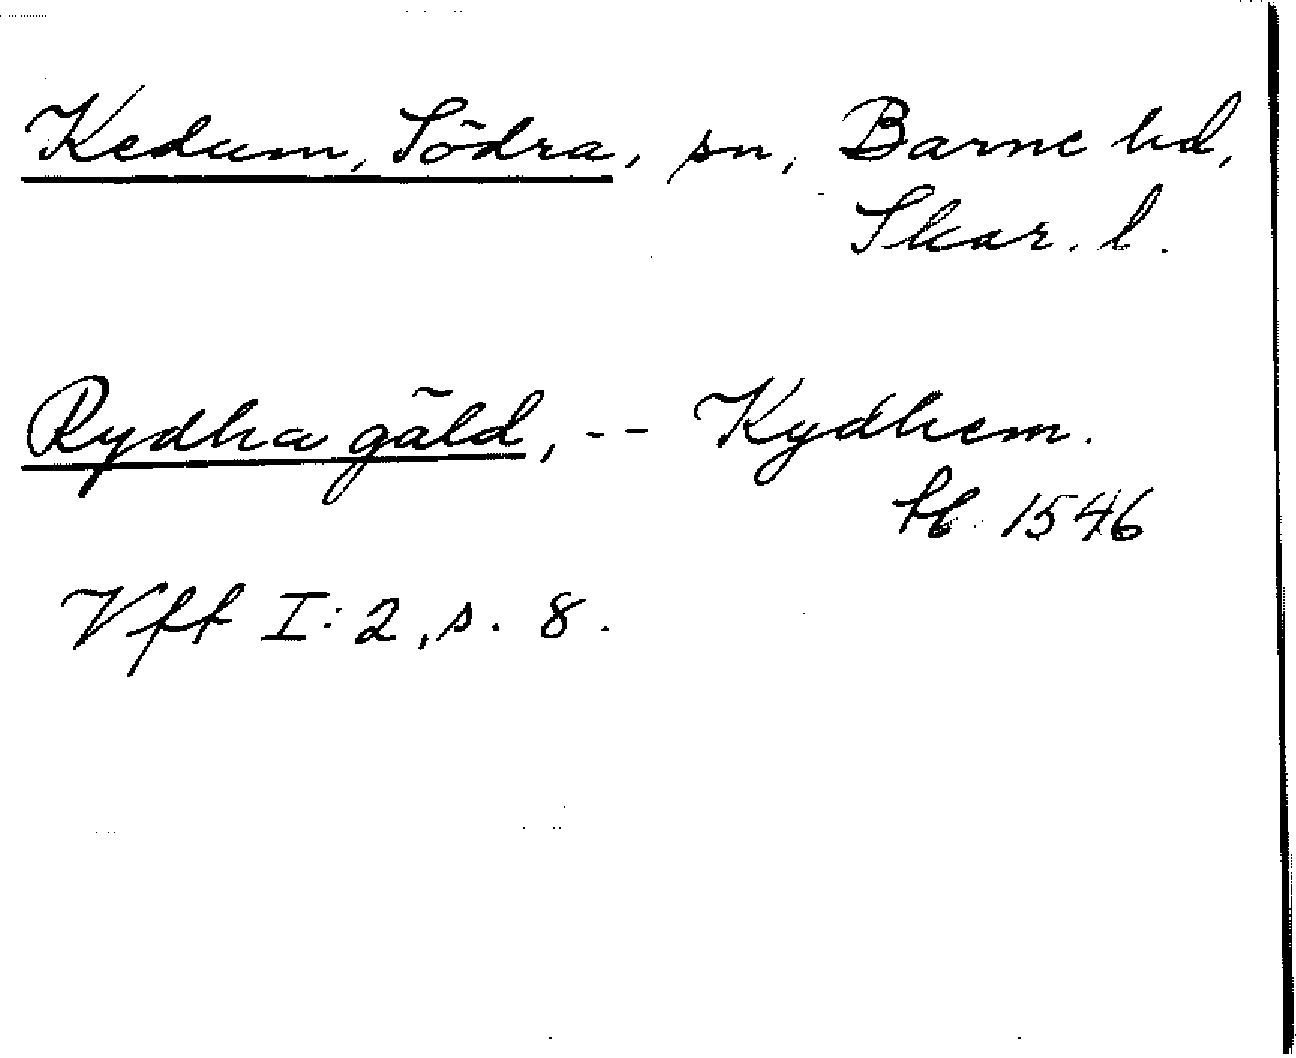 Kedum, Södra, sn, Barne hd,
Skar. l.
Rydha gäld, -- Kydhem.
1546
Vff I:2, s. 8.